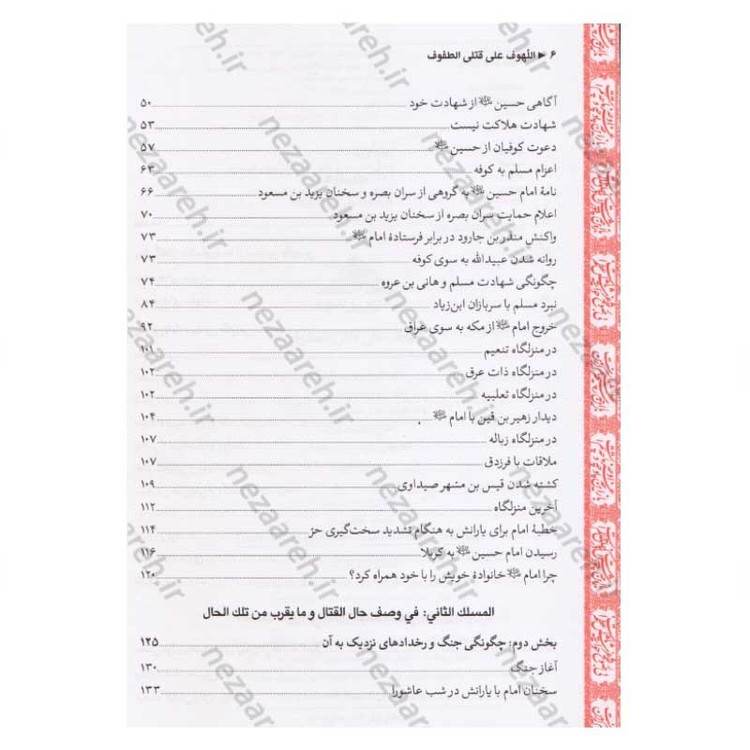 ۶ ► اللهوف علی قتلی الطفوف
آگاهی حسین ﷺ از شهادت خود ۵۰
شهادت هلاکت نیست ۵۳
دعوت کوفیان از حسین ﷺ ۵۷
اعزام مسلم به کوفه ۶۳
نامۀ امام حسین ﷺ به گروهی از سران بصره و سخنان یزید بن مسعود ۶۶
اعلام حمایت سران بصره از سخنان یزید بن مسعود ۷۰
واکنش منذر بن جارود در برابر فرستادۀ امام ﷺ ۷۳
روانه شدن عبیدالله به سوی کوفه ۷۳
چگونگی شهادت مسلم و هانی بن عروه ۷۴
نبرد مسلم با سربازان ابن‌زیاد ۸۴
خروج امام ﷺ از مکه به سوی عراق ۹۲
در منزلگاه تنعیم ۱۰۱
در منزلگاه ذات عرق ۱۰۲
در منزلگاه ثعلبیه ۱۰۲
دیدار زهیر بن قین با امام ﷺ ۱۰۴
در منزلگاه زباله ۱۰۷
ملاقات با فرزدق ۱۰۷
کشته شدن قیس بن مشهر صیداوی ۱۰۹
آخرین منزلگاه ۱۱۲
خطبۀ امام برای یارانش به هنگام تشدید سخت‌گیری حرّ ۱۱۴
رسیدن امام حسین ﷺ به کربلا ۱۱۶
چرا امام ﷺ خانوادۀ خویش را با خود همراه کرد؟ ۱۲۰
المسلك الثاني: في وصف حال القتال و ما يقرب من تلك الحال
بخش دوم: چگونگی جنگ و رخدادهای نزدیک به آن ۱۲۵
آغاز جنگ ۱۳۰
سخنان امام با یارانش در شب عاشورا ۱۳۳
nezaareh.ir